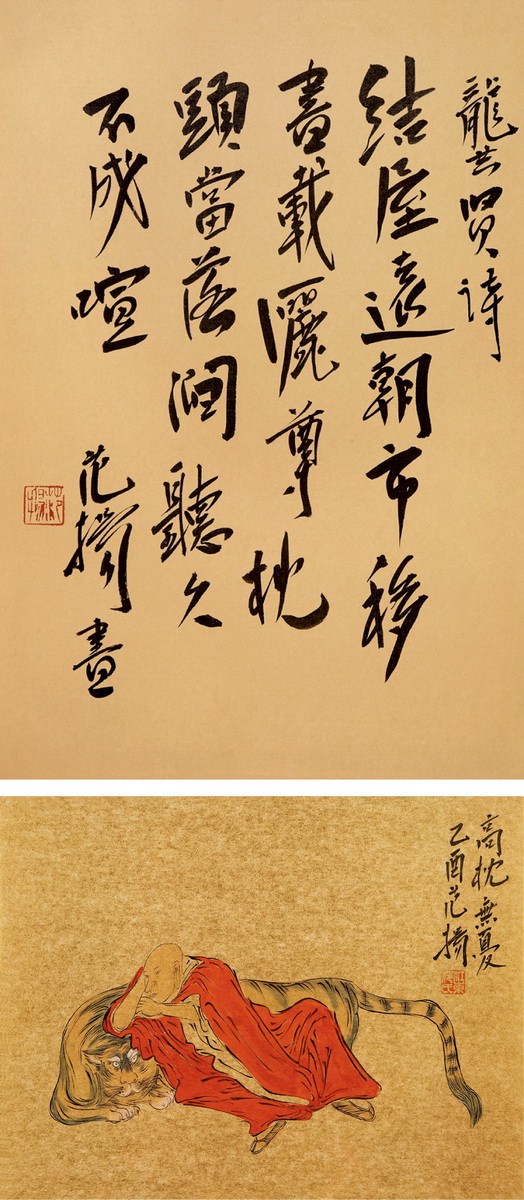 龔贤诗
結屋遠朝市移
書載儷尊枕
頭當落澗聽久
不成喧
范揚書
高枕無憂
乙酉范揚